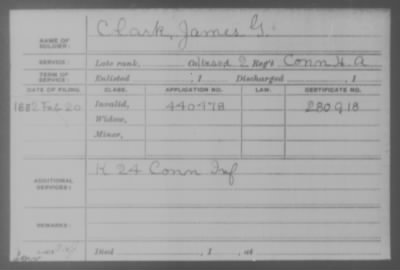 NAME OF SOLDIER: Clark, James G.
SERVICE: Late rank, Unassd 2 Reg't Conn H. A
TERM OF SERVICE: Enlisted , 1 Discharged , 1
DATE OF FILING. CLASS. APPLICATION NO. LAW. CERTIFICATE NO.
1882 Feb 20 Invalid, 440478 280918
Widow,
Minor,
ADDITIONAL SERVICES: K 24 Conn Inf
REMARKS:
Died , 1 , at